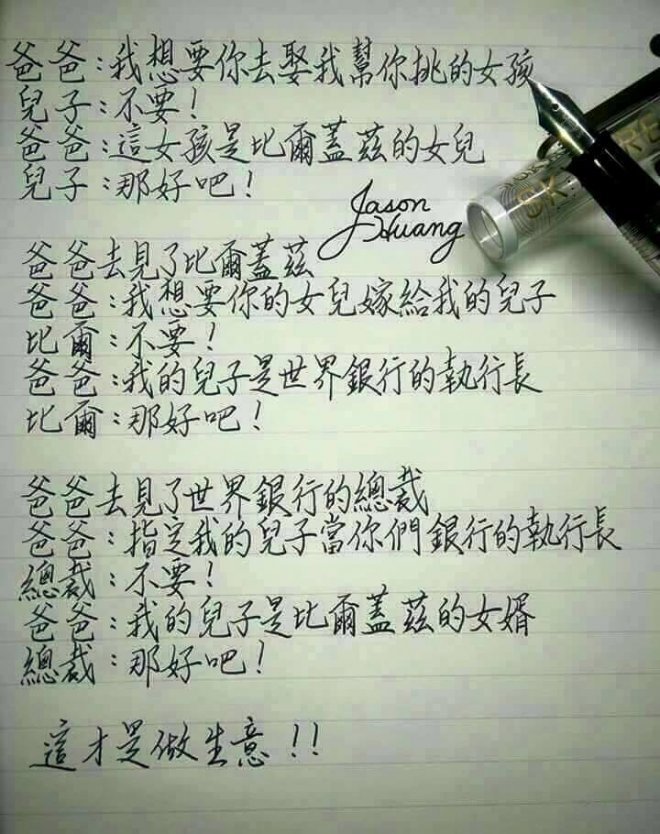 爸爸:我想要你去娶我幫你挑的女孩
兒子:不要!
爸爸:這女孩是比爾蓋茲的女兒
兒子:那好吧!
Jason
Huang
爸爸去見了比爾蓋茲
爸爸:我想要你的女兒嫁給我的兒子
比爾:不要!
爸爸:我的兒子是世界銀行的執行長
比爾:那好吧!
爸爸去見了世界銀行的總裁
爸爸:指定我的兒子當你們銀行的執行長
總裁:不要!
爸爸:我的兒子是比爾蓋茲的女婿
總裁:那好吧!
這才是做生意!!